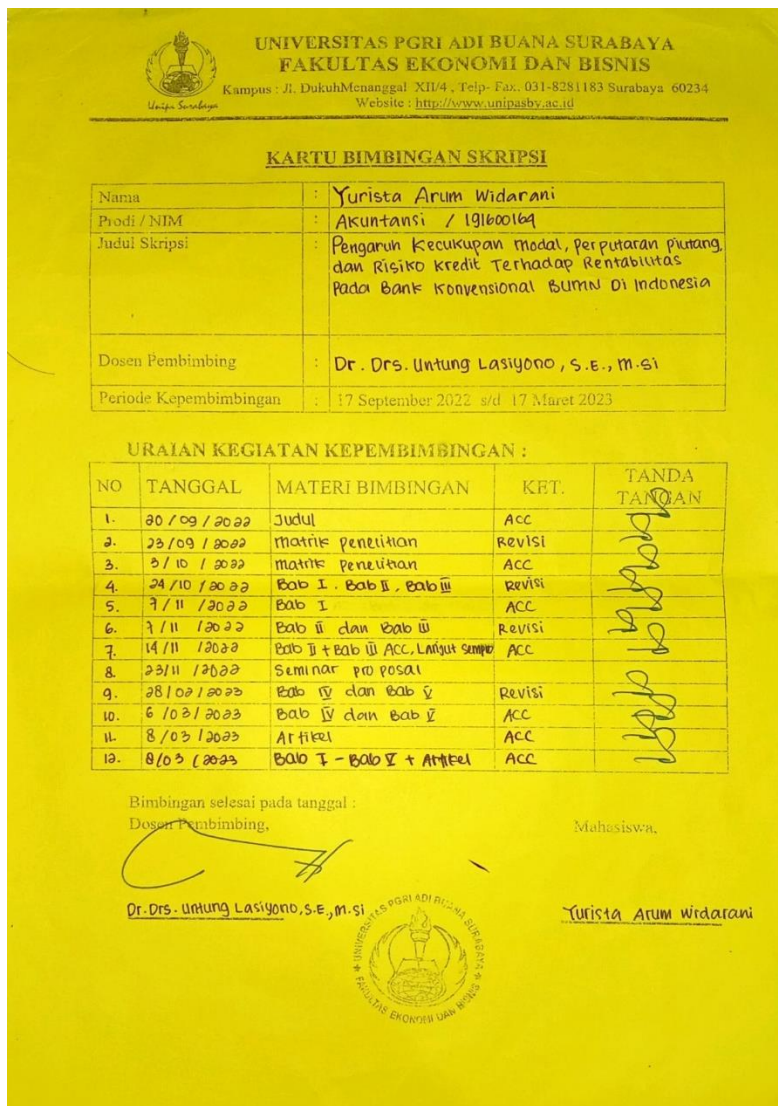 UNIVERSITAS PGRI ADI BUANA SURABAYA
FAKULTAS EKONOMI DAN BISNIS
Kampus : Jl. DukuhMenanggal XII/4 , Telp- Fax. 031-8281183 Surabaya 60234
Website : http://www.unipasby.ac.id
Unipa Surabaya
KARTU BIMBINGAN SKRIPSI
Nama : Yurista Arum Widarani
Prodi / NIM : Akuntansi / 191600169
Judul Skripsi : Pengaruh Kecukupan Modal, Perputaran Piutang,
dan Risiko Kredit Terhadap Rentabilitas
Pada Bank Konvensional BUMN Di Indonesia
Dosen Pembimbing : Dr. Drs. Untung Lasiyono, S.E., M.Si
Periode Kepembimbingan : 17 September 2022 s/d 17 Maret 2023
URAIAN KEGIATAN KEPEMBIMBINGAN :
NO TANGGAL MATERI BIMBINGAN KET. TANDA TANGAN
1. 20/09/2022 Judul ACC
2. 23/09/2022 Matrik penelitian Revisi
3. 3/10/2022 Matrik penelitian ACC
4. 24/10/2022 Bab I. Bab II, Bab III Revisi
5. 7/11/2022 Bab I ACC
6. 7/11/2022 Bab II dan Bab III Revisi
7. 14/11/2022 Bab II + Bab III ACC, Lanjut Sempro ACC
8. 23/11/2022 Seminar proposal
9. 28/02/2023 Bab IV dan Bab V Revisi
10. 6/03/2023 Bab IV dan Bab V ACC
11. 8/03/2023 Artikel ACC
12. 8/03/2023 Bab I - Bab V + Artikel ACC
Bimbingan selesai pada tanggal :
Dosen Pembimbing, Mahasiswa,
Dr. Drs. Untung Lasiyono, S.E., M.Si Yurista Arum Widarani
UNIVERSITAS PGRI ADI BUANA SURABAYA
FAKULTAS EKONOMI DAN BISNIS